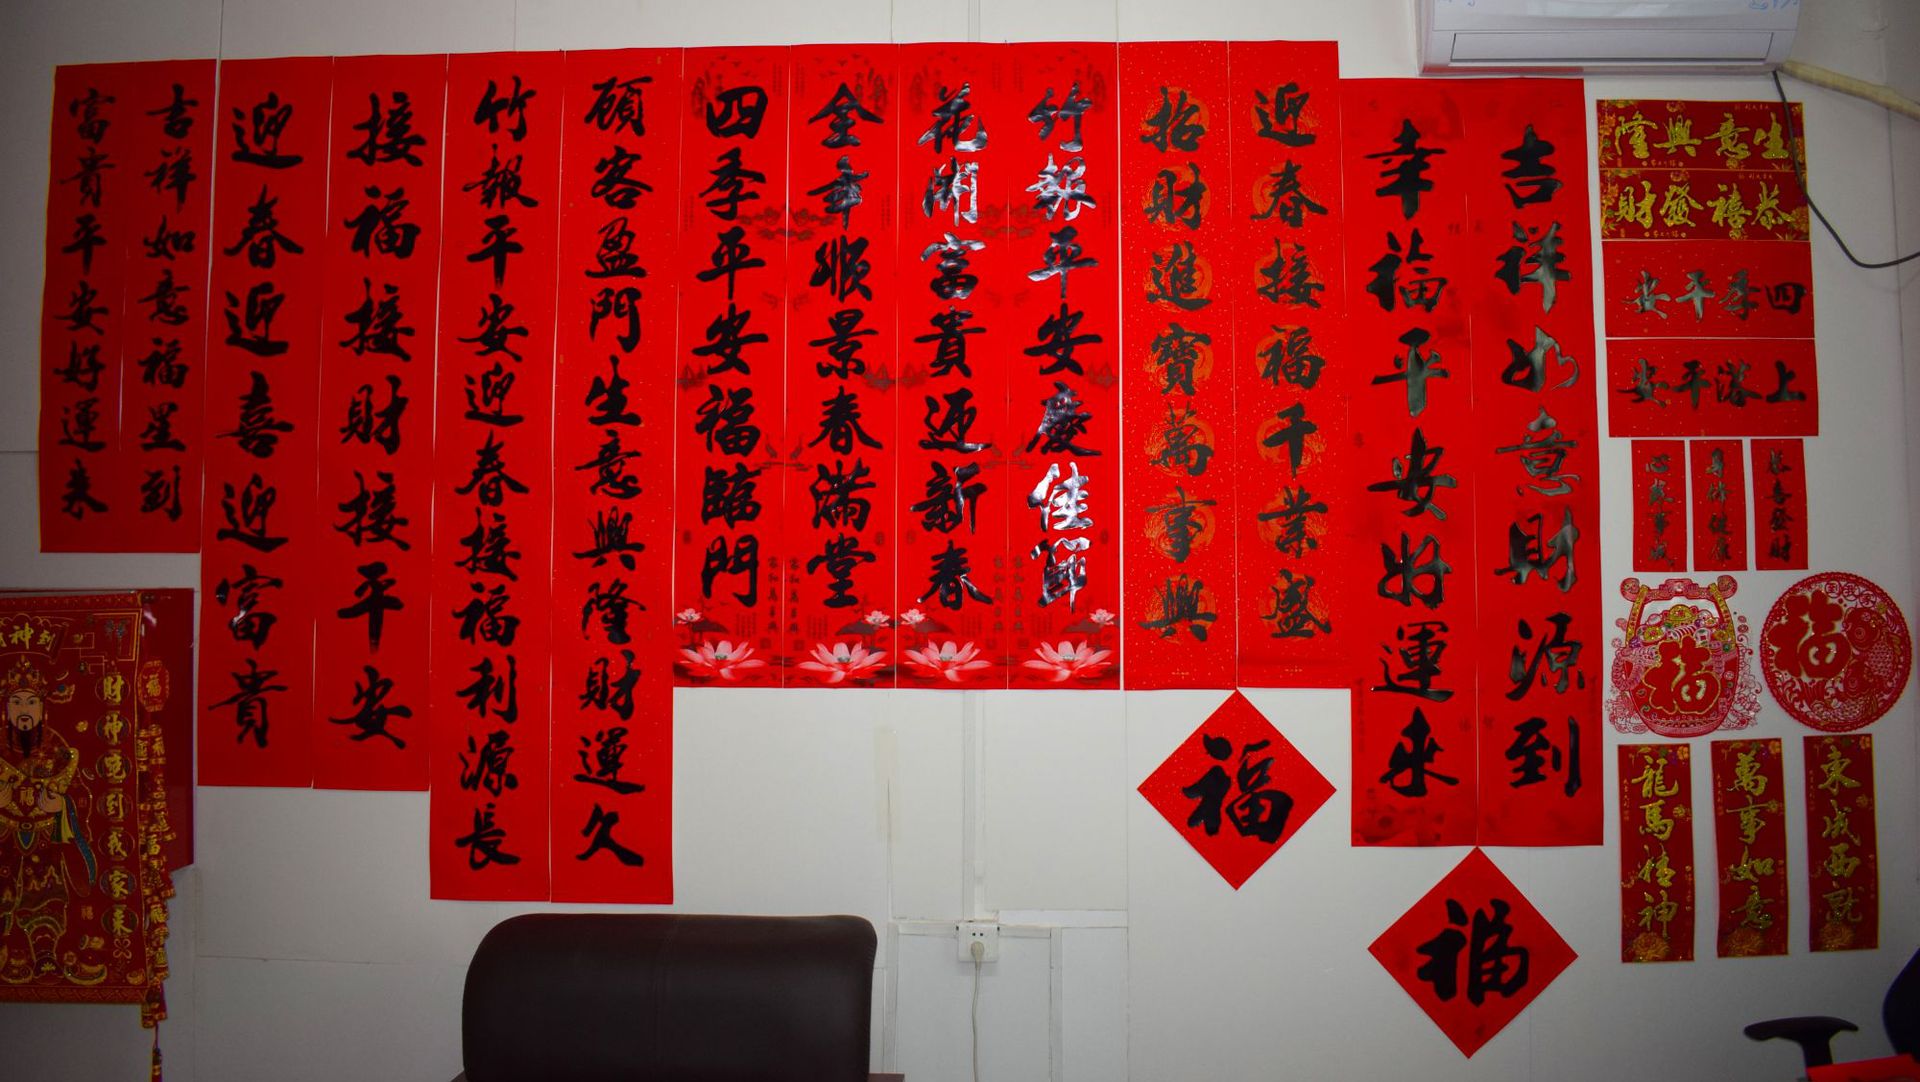 生意興隆
恭禧發財
四季平安
上落平安
恭喜發財
身体健康
心想事成
福
福
東成西就
萬事如意
龍馬精神
吉祥如意財源到
幸福平安好運來
福
迎春接福千業盛
招財進寶萬事興
福
竹報平安慶佳節
花開富貴迎新春
全年順景春滿堂
四季平安福臨門
顧客盈門生意興隆財運久
竹報平安迎春接福利源長
接福接財接平安
迎春迎喜迎富貴
吉祥如意福星到
富貴平安好運来
神到
財神到我家来
福